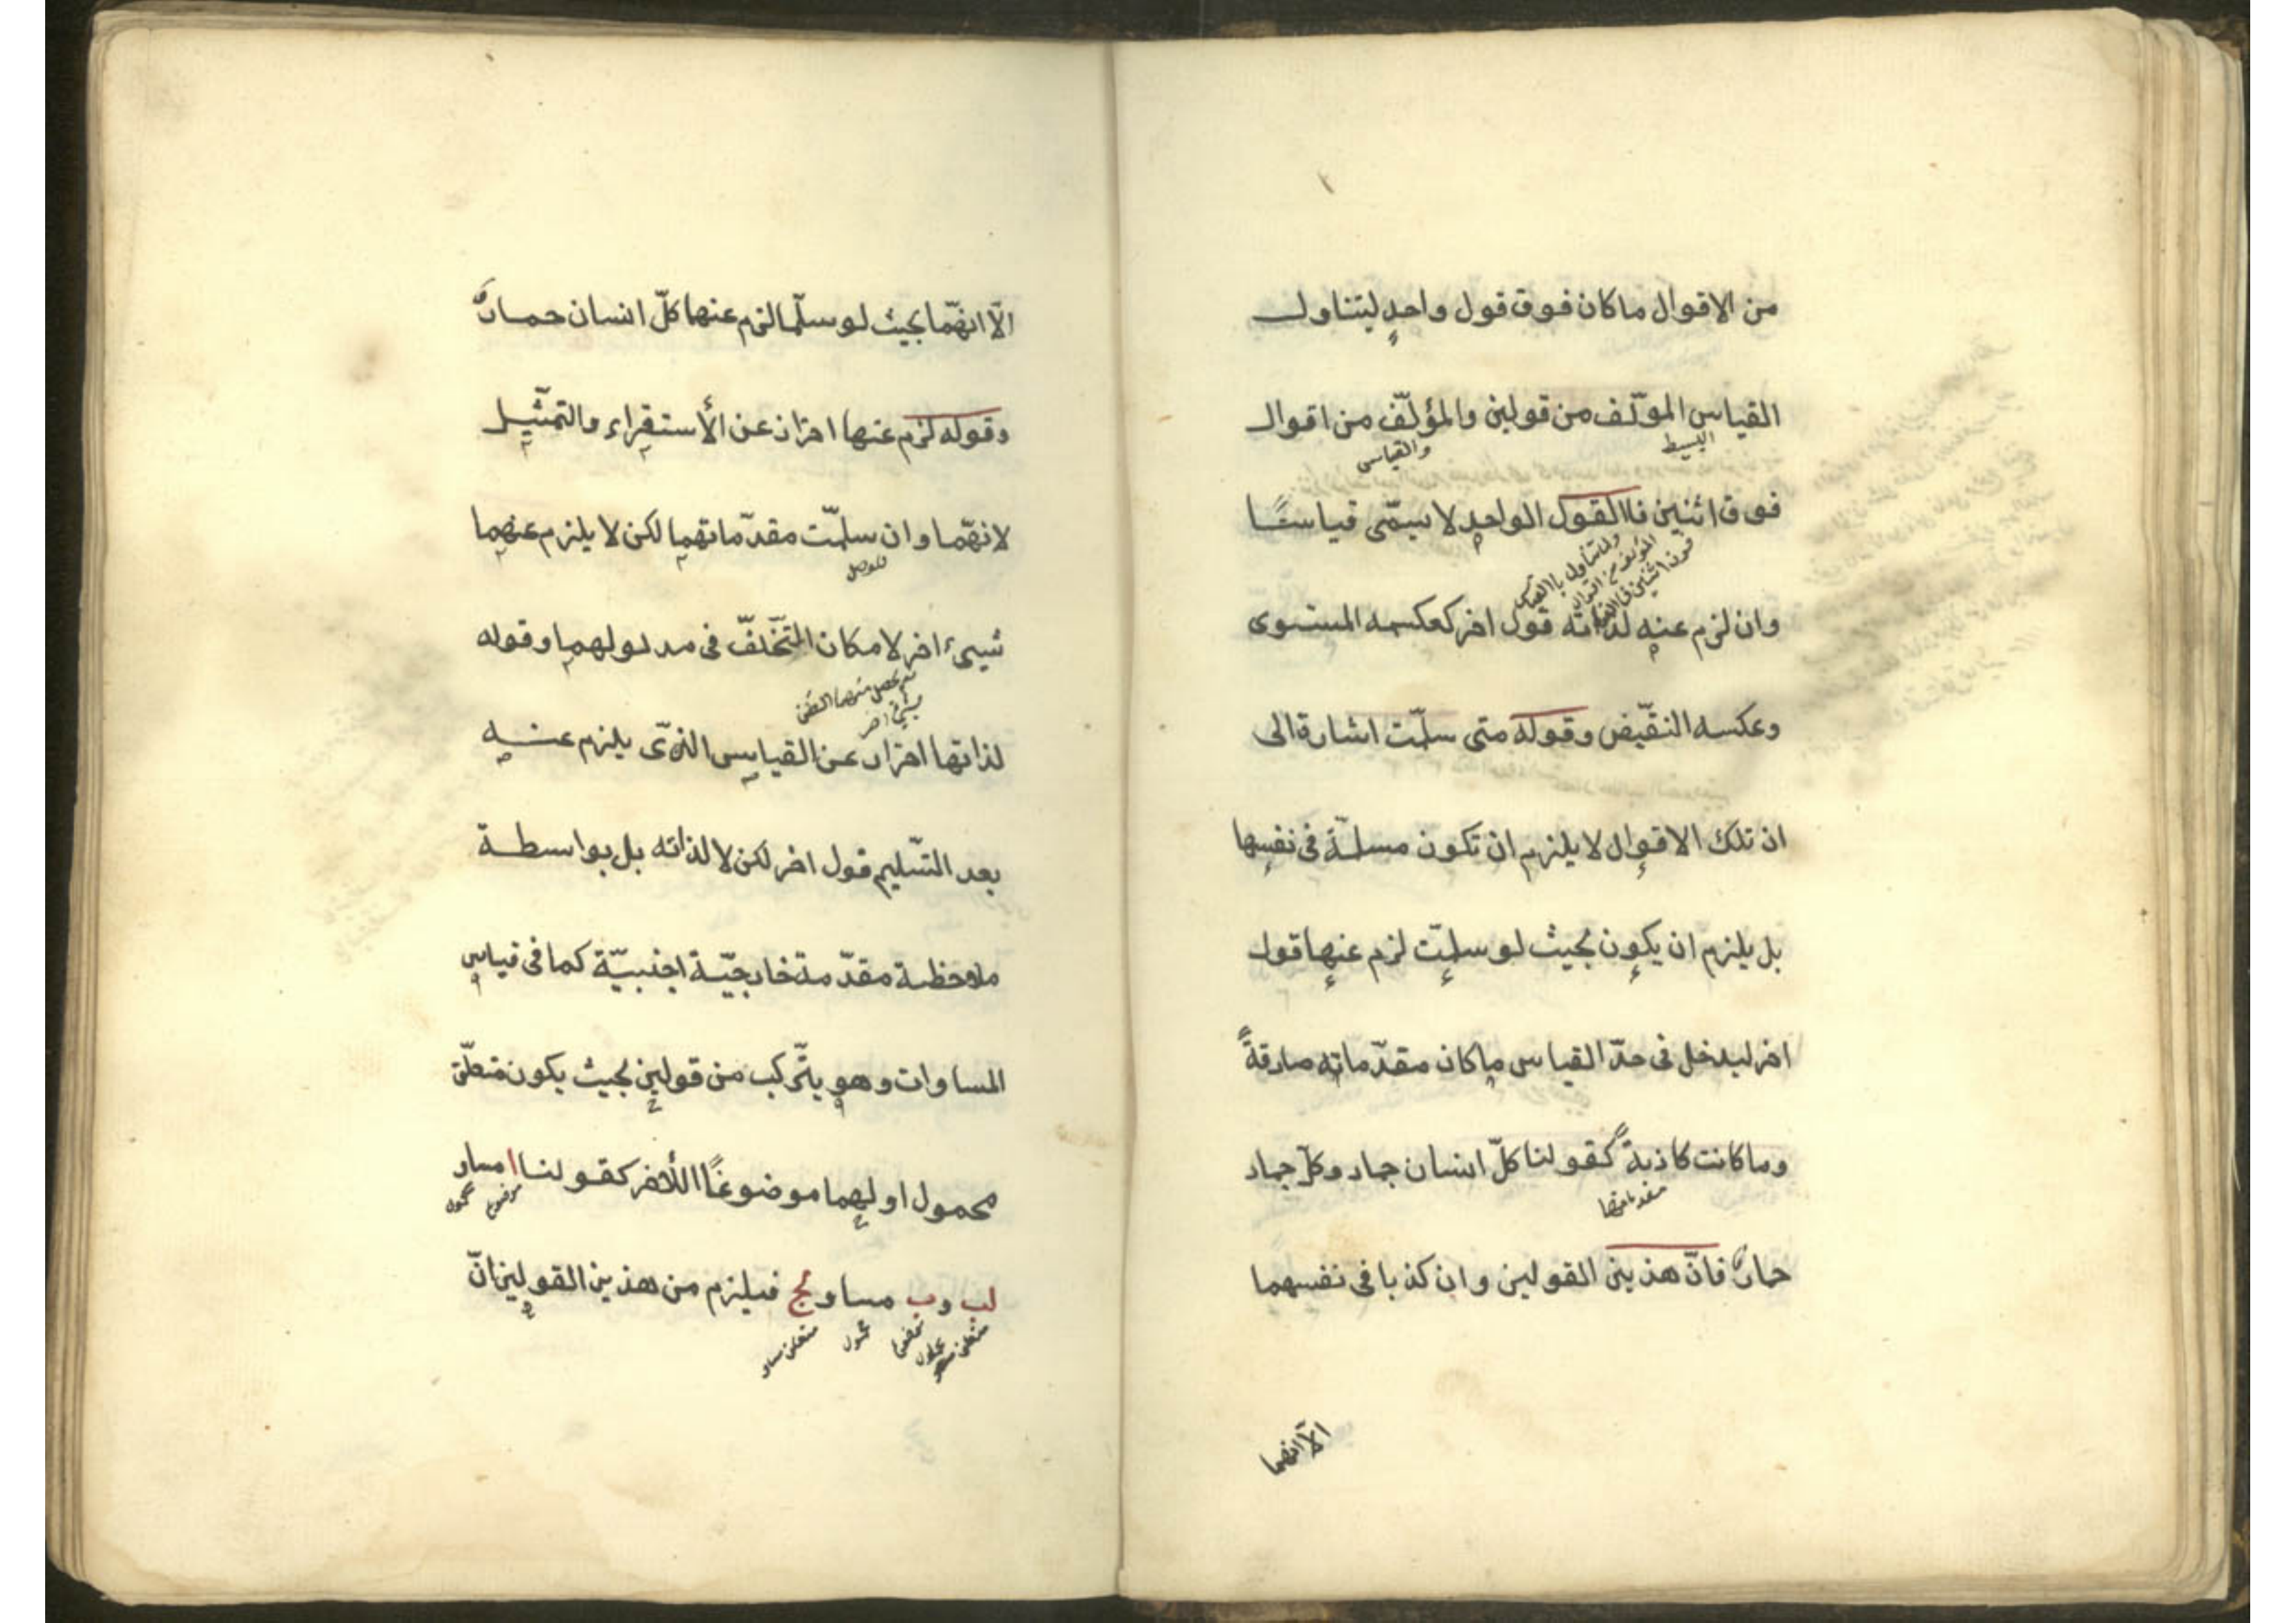 من الاقوال ما كان فوق قول واحدٍ ليتناول
القياس المؤلّف من قولين والمؤلّف من اقوال
البسيط
والقياس
فوق اثنين فالقول الواحد لا يسمّى قياسًا
وان لزم عنه لذاته قول اخر كعكسه المستوى
وعكسه النقّيض وقوله متى سلّمت اشارة الى
ان تلك الاقوال لا يلزم ان تكون مسلمّة فى نفسها
بل يلزم ان يكون بحيث لو سلمّت لزم عنها قول
اخر ليدخل فى حدّ القياس ما كان مقدّماته صادقةً
وما كانت كاذبةً كقولنا كلّ انسان جماد وكلّ جماد
مقدماتها
حمارٌ فانّ هذين القولين وان كذبا فى نفسهما
الّا انهما
الّا انهّما بحيث لو سلّما لزم عنها كلّ انسان حمارٌ
وقوله لزم عنها احتراز عن الأستقراء والتمثّيل
لانهّما وان سلمّت مقدّماتهما لكن لا يلزم عنهما
للوصل
شيئ اخر لامكان التخّلفّ فى مدلولهما وقوله
نعم يحصل منهما الظن
بشيئ اخر
لذاتها احتراز عن القياس الذّى يلزم عنه
بعد التسّليم قول اخر لكن لا لذاته بل بواسطة
ملاحظة مقدّمة خارجيّة اجنبيّة كما فى قياس
المساوات وهو يتّركب من قولين بحيث يكون متعلّق
محمول اولهما موضوعًا اللأخر كقولنا ا مساو
موضوع
محمول
لب وب مساو لج فيلزم من هذين القولين انّ
محمول
متعلق مساو